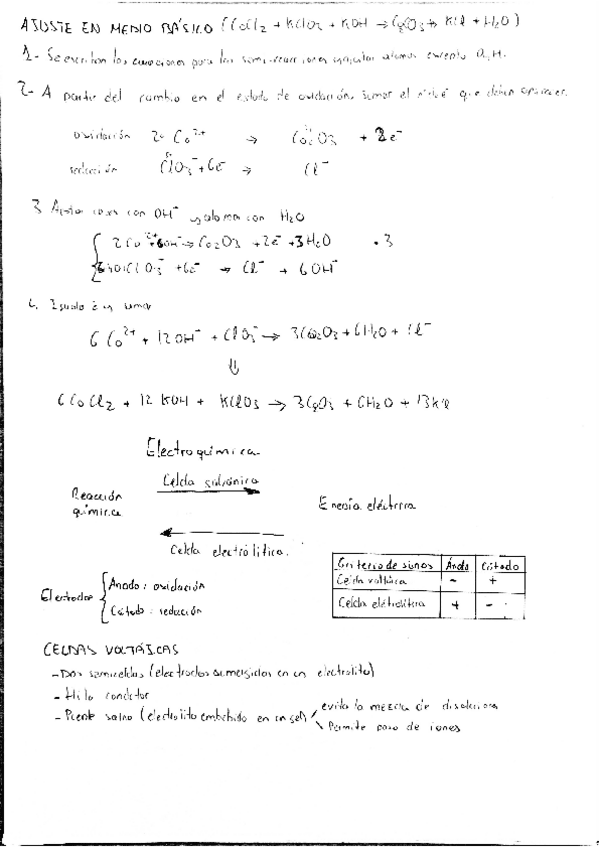 AJUSTE EN MEDIO BÁSICO (CoCl2 + KClO3 + KOH → Co2O3 + KCl + H2O)
1- Se escriben las ecuaciones para las semirreacciones ajustar átomos excepto O, H.
2- A partir del cambio en el estado de oxidación, sumar el nº de e- que deben aparecer.
oxidación 2 Co2+ → Co2O3 + 2e-
reducción ClO3- + 6e- → Cl-
3 Ajustar con OH- y con H2O
2Co2+ + 6OH- → Co2O3 + 2e- + 3H2O · 3
ClO3- + 6e- → Cl- + 6OH-
4. Igualo e- y sumar
6Co2+ + 12OH- + ClO3- → 3Co2O3 + 6H2O + Cl-
⇓
6CoCl2 + 12 KOH + KClO3 → 3Co2O3 + 6H2O + 13KCl
Electroquímica
Celda galvánica
Reacción química
Energía eléctrica
Celda electrolítica.
Criterio de signos Ánodo Cátodo
Celda voltáica - +
Celda eletrolítica + -
Electrodos
Anodo: oxidación
Cátodo: reducción
CELDAS VOLTÁICAS
- Dos semiceldas (electrodos sumergidos en un electrolito)
- Hilo conductor
- Puente salino (electrolito embebido en un gel)
evita la mezcla de disoluciones
Permite paso de iones